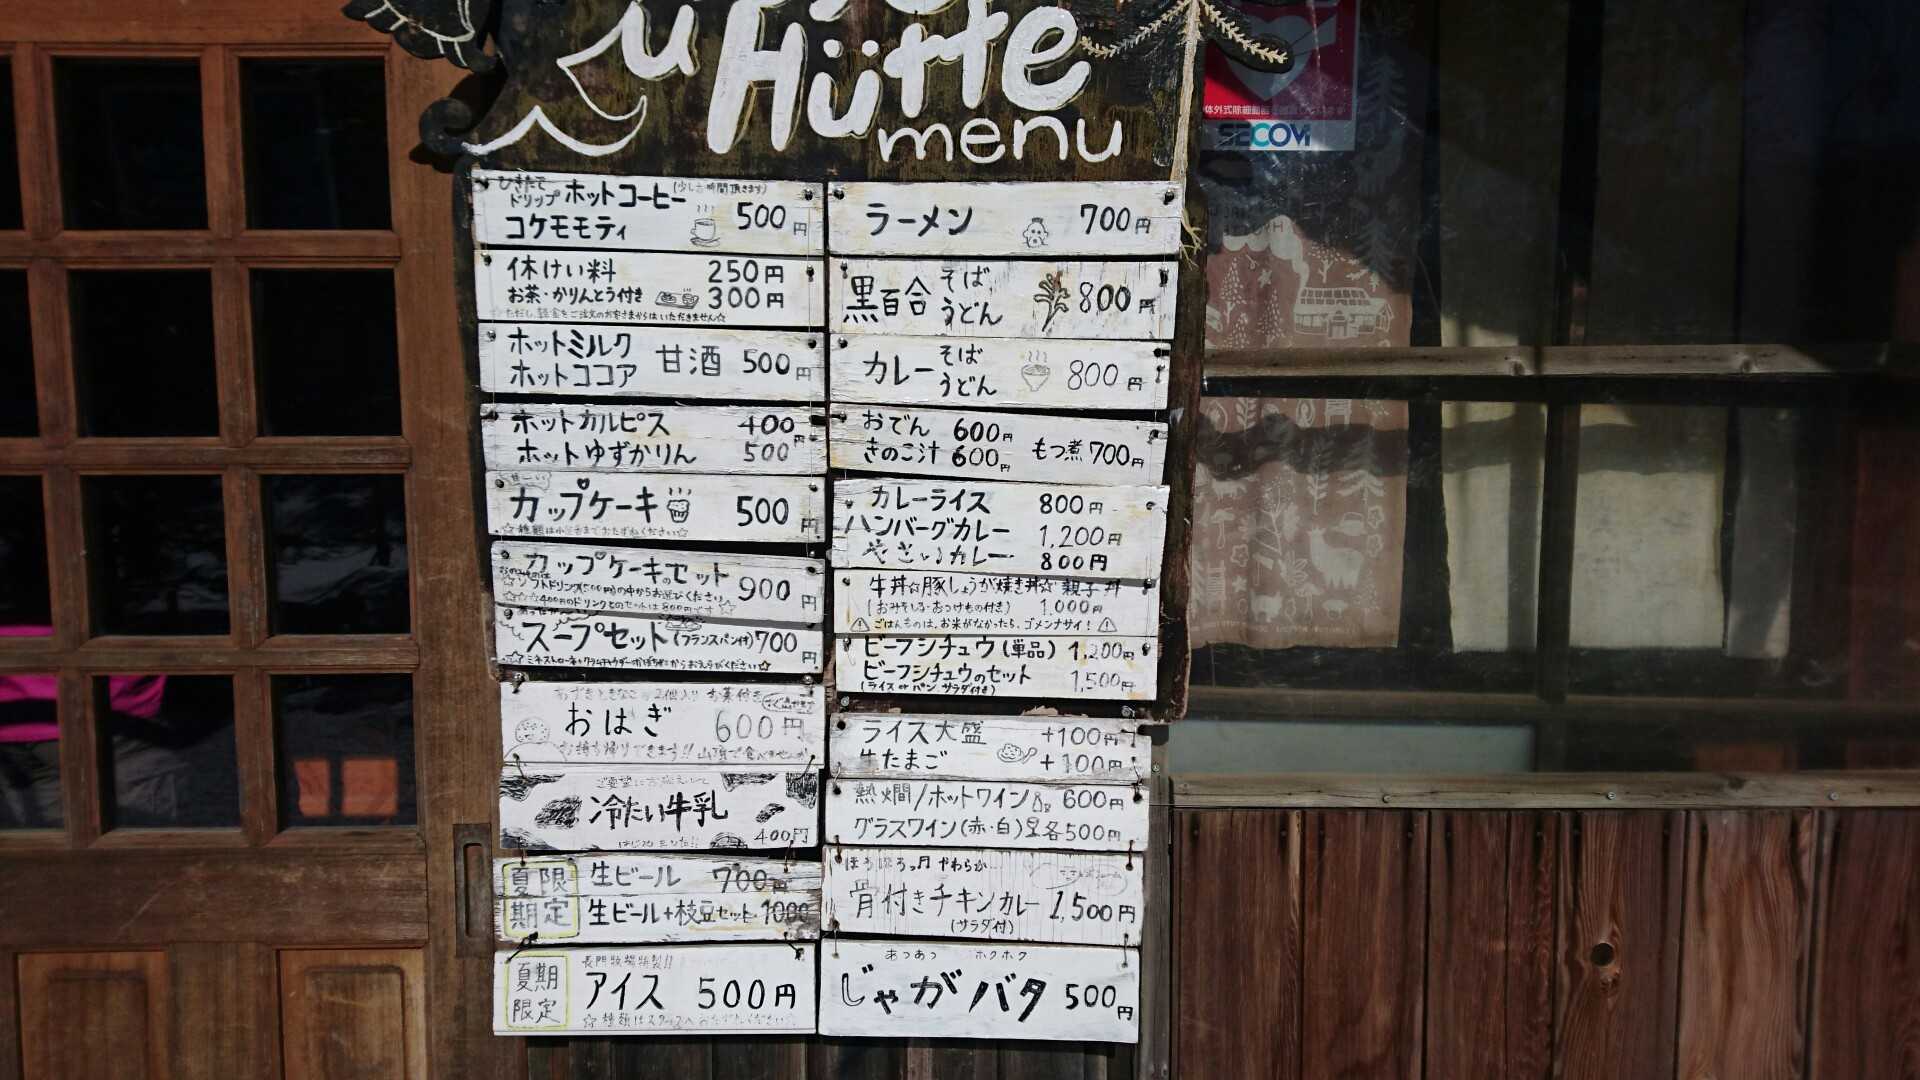 Hütte
menu
ひきたて
ドリップ ホットコーヒー
コケモモティ 500円
休けい料 250円
お茶・かりんとう付き 300円
☆ただし、軽食をご注文のお客さまからはいただきません☆
ホットミルク
ホットココア 甘酒 500円
ホットカルピス 400円
ホットゆずかりん 500
カップケーキ 500円
カップケーキのセット 900円
☆☆☆400円のドリンクとのセットは800円です☆
スープセット(フランスパン付) 700円
おはぎ 600円
お持ち帰りできます!! 山頂で食べませんか
冷たい牛乳 400円
夏限
期定
生ビール 700円
生ビール+枝豆セット 1000
夏期
限定
長門牧場特製!!
アイス 500円
☆種類はスタッフへおたずねください☆
ラーメン 700円
黒百合 そば
うどん 800円
カレー そば
うどん 800円
おでん 600円
きのこ汁 600円 もつ煮 700円
カレーライス 800円
ハンバーグカレー 1,200円
やさいカレー 800円
牛丼☆豚しょうが焼き丼☆親子丼
(おみそしる・おつけもの付き) 1,000円
⚠ごはんものは、お米がなかったら、ゴメンナサイ!⚠
ビーフシチュウ(単品) 1,200円
ビーフシチュウのセット 1,500円
(ライス or パン、サラダ付き)
ライス大盛 +100円
生たまご +100円
熱燗/ホットワイン 600円
グラスワイン(赤・白) 各500円
やわらか
骨付きチキンカレー 1,500円
(サラダ付)
あつあつ ホクホク
じゃがバタ 500円
SECOM